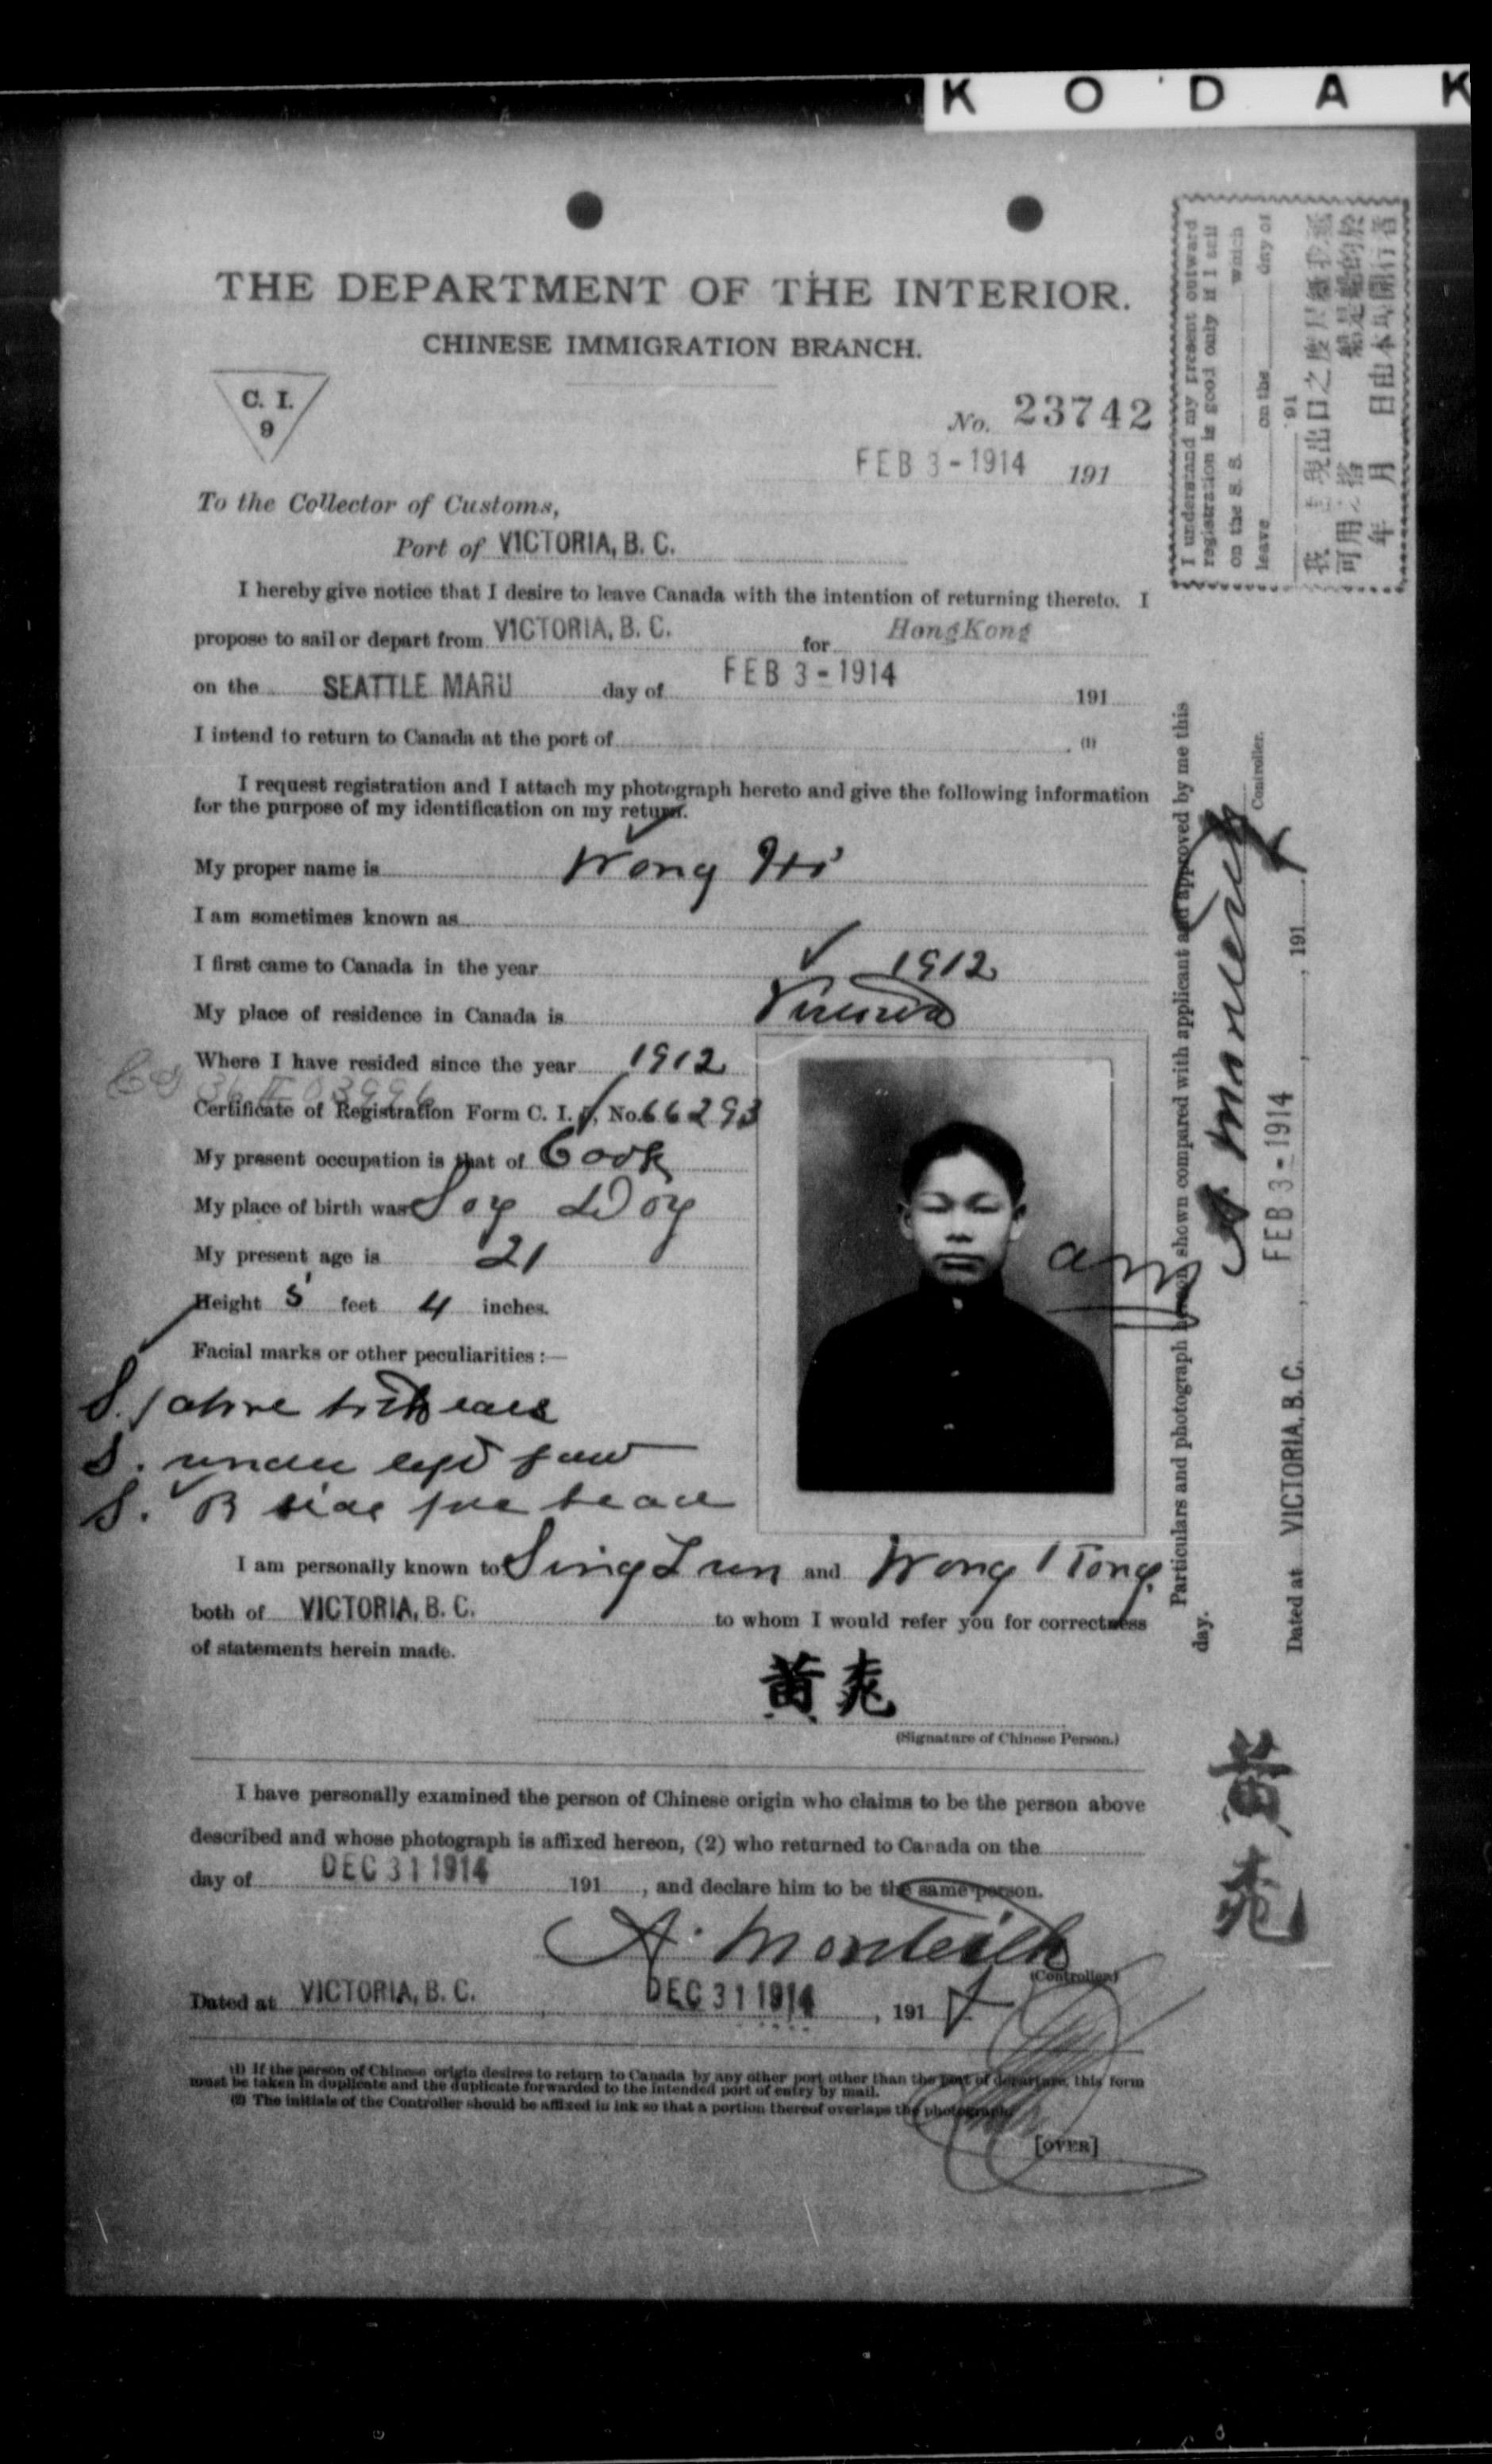 KODAK
THE DEPARTMENT OF THE INTERIOR.
CHINESE IMMIGRATION BRANCH.
C. I.
9
No. 23742
FEB 3-1914 191
To the Collector of Customs,
Port of VICTORIA, B. C.
I hereby give notice that I desire to leave Canada with the intention of returning thereto. I
propose to sail or depart from VICTORIA, B. C. for HongKong
on the SEATTLE MARU day of FEB 3-1914 191
I intend to return to Canada at the port of (1)
I request registration and I attach my photograph hereto and give the following information
for the purpose of my identification on my return.
My proper name is Wong Hi
I am sometimes known as
I first came to Canada in the year 1912
My place of residence in Canada is Victoria
Where I have resided since the year 1912
Certificate of Registration Form C. I. 5, No. 66293
My present occupation is that of Cook
My place of birth was Soy Doy
My present age is 21
Height 5 feet 4 inches.
Facial marks or other peculiarities :—
S. above ears
S. under left jaw
S. R side forehead
I am personally known to Sing Lun and Wong Tong
both of VICTORIA, B. C. to whom I would refer you for correctness
of statements herein made.
黄
(Signature of Chinese Person.)
I have personally examined the person of Chinese origin who claims to be the person above
described and whose photograph is affixed hereon, (2) who returned to Canada on the
day of DEC 31 1914 191 , and declare him to be the same person.
A. Monteith
(Controller)
Dated at VICTORIA, B. C. DEC 31 1914 , 191
(1) If the person of Chinese origin desires to return to Canada by any other port other than the port of departure, this form
must be taken in duplicate and the duplicate forwarded to the intended port of entry by mail.
(2) The initials of the Controller should be affixed in ink so that a portion thereof overlaps the photograph.
[OVER]
I understand my present outward
registration is good only if I sail
on the S. S. which
leave on the day of
191
年 月 日由本埠開行者
Particulars and photograph hereon shown compared with applicant and approved by me this
day.
A. Monteith
Controller.
Dated at VICTORIA, B. C. , FEB 3-1914 , 191
黄